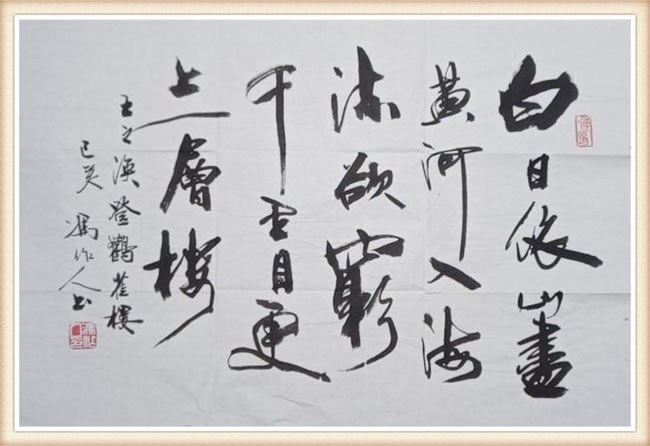 白日依山盡
黄河入海
流欲窮
千里目更
上一層樓
王之渙登鸛雀樓
己亥馮作人书